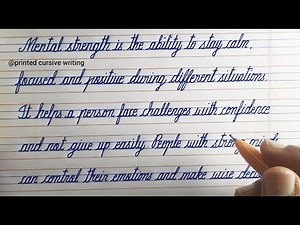 Mental strength is the ability to stay calm,
@printed cursive writing
focused and positive during different situations.
It helps a person face challenges with confidence
and not give up easily. People with strong
can control their emotions and make wise